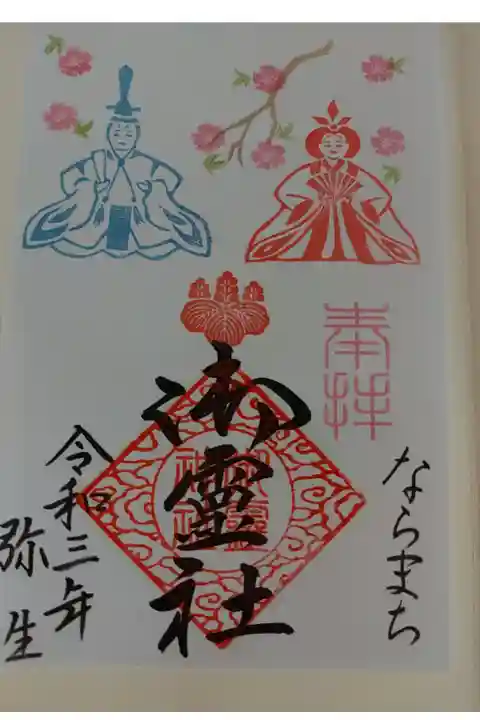 奉拝
ならまち
御霊社
令和三年
弥生